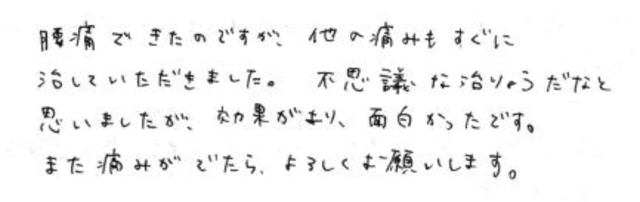 腰痛できたのですが、他の痛みもすぐに
治していただきました。 不思議な治りょうだなと
思いましたが、効果があり、面白かったです。
また痛みがでたら、よろしくお願いします。